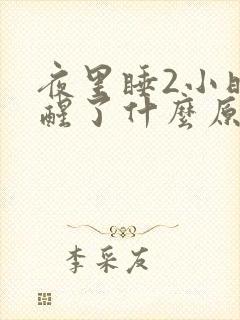 夜里睡2小时
醒了什麼原
李采友